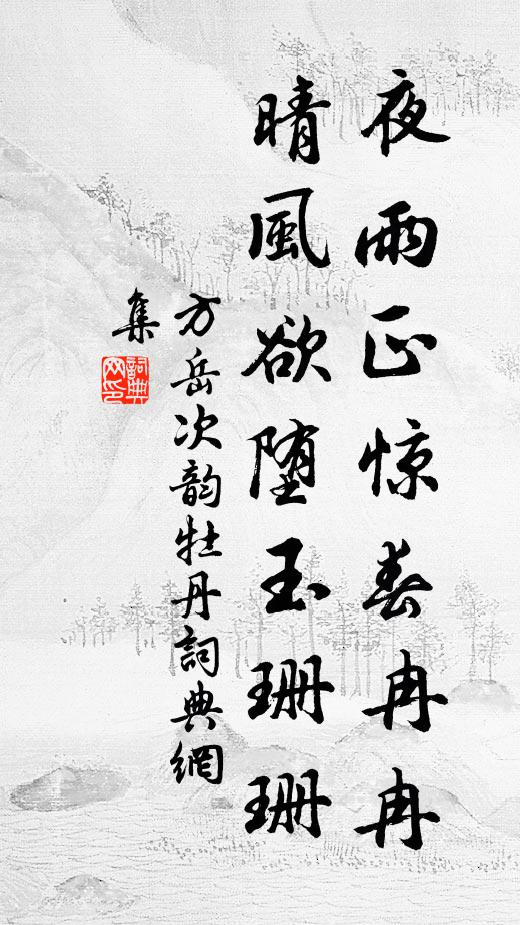 夜雨正惊春冉冉
晴風欲堕玉珊珊
方岳次韵牡丹詞典網
集
詞典
网印